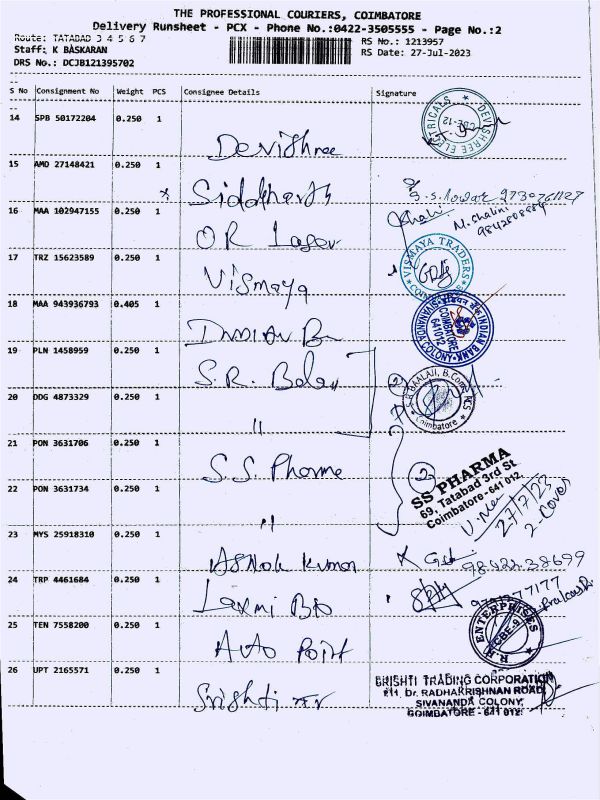 THE PROFESSIONAL COURIERS, COIMBATORE
Delivery Runsheet - PCX - Phone No.:0422-3505555 - Page No.:2
Route: TATABAD 3 4 5 6 7
RS No.: 1213957
Staff: K BASKARAN
RS Date: 27-Jul-2023
DRS No.: DCJB121395702
S No Consignment No Weight PCS Consignee Details Signature
14 SPB 50172204 0.250 1
Devishree
DEVISHREE ELECTRICALS CBE-12
15 AMD 27148421 0.250 1
Siddharth
16 MAA 102947155 0.250 1
Shalini M. Shalini
OR
17 TRZ 15623589 0.250 1
Vismaya
VISMAYA TRADERS
18 MAA 943936793 0.405 1
INDIAN BANK
SIVANANDA COLONY
COIMBATORE
641 012
19 PLN 1458959 0.250 1
S.R. Balaji
20 DDG 4873329 0.250 1
"
BAALAJI, B.Com., FCS
Coimbatore
21 PON 3631706 0.250 1
S.S. Pharma
2
SS PHARMA
69, Tatabad 3rd St.
Coimbatore-641 012.
22 PON 3631734 0.250 1
"
27/7/23
2-Cover
23 MYS 25918310 0.250 1
Ashok Kumar
98422 38699
24 TRP 4461684 0.250 1
Laxmi
25 TEN 7558200 0.250 1
Auto Point
R.R ENTERPRISES
CBE-9
26 UPT 2165571 0.250 1
Srishti
SRISHTI TRADING CORPORATION
Dr. RADHAKRISHNAN ROAD
SIVANANDA COLONY,
COIMBATORE - 641 012.